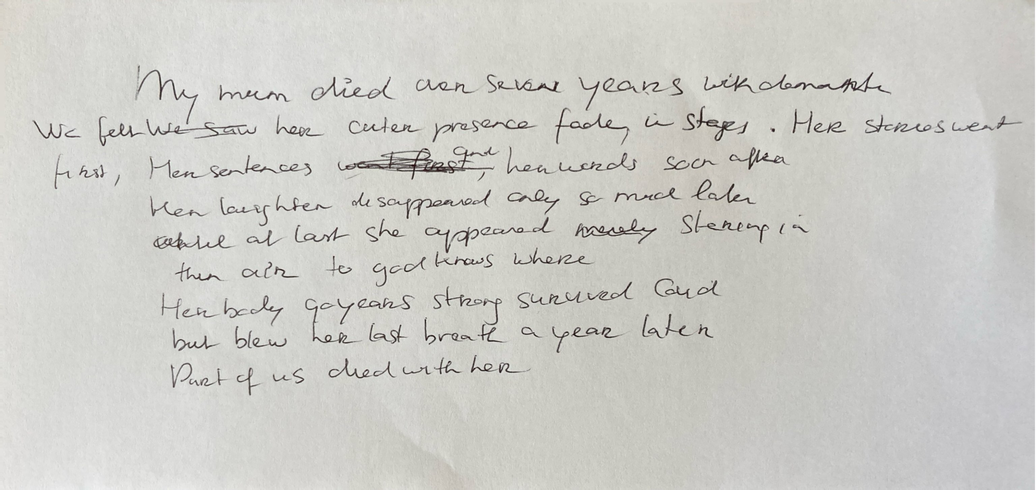 My mum died over seven years with dementia
We felt We saw her outer presence fade, in stages. Her stories went
first, Her sentences went first, and her words soon after
Her laughter disappeared only so much later
at last she appeared merely staring in
then air to god knows where
Her body 90 years strong survived Covid
but blew her last breath a year later
Part of us died with her